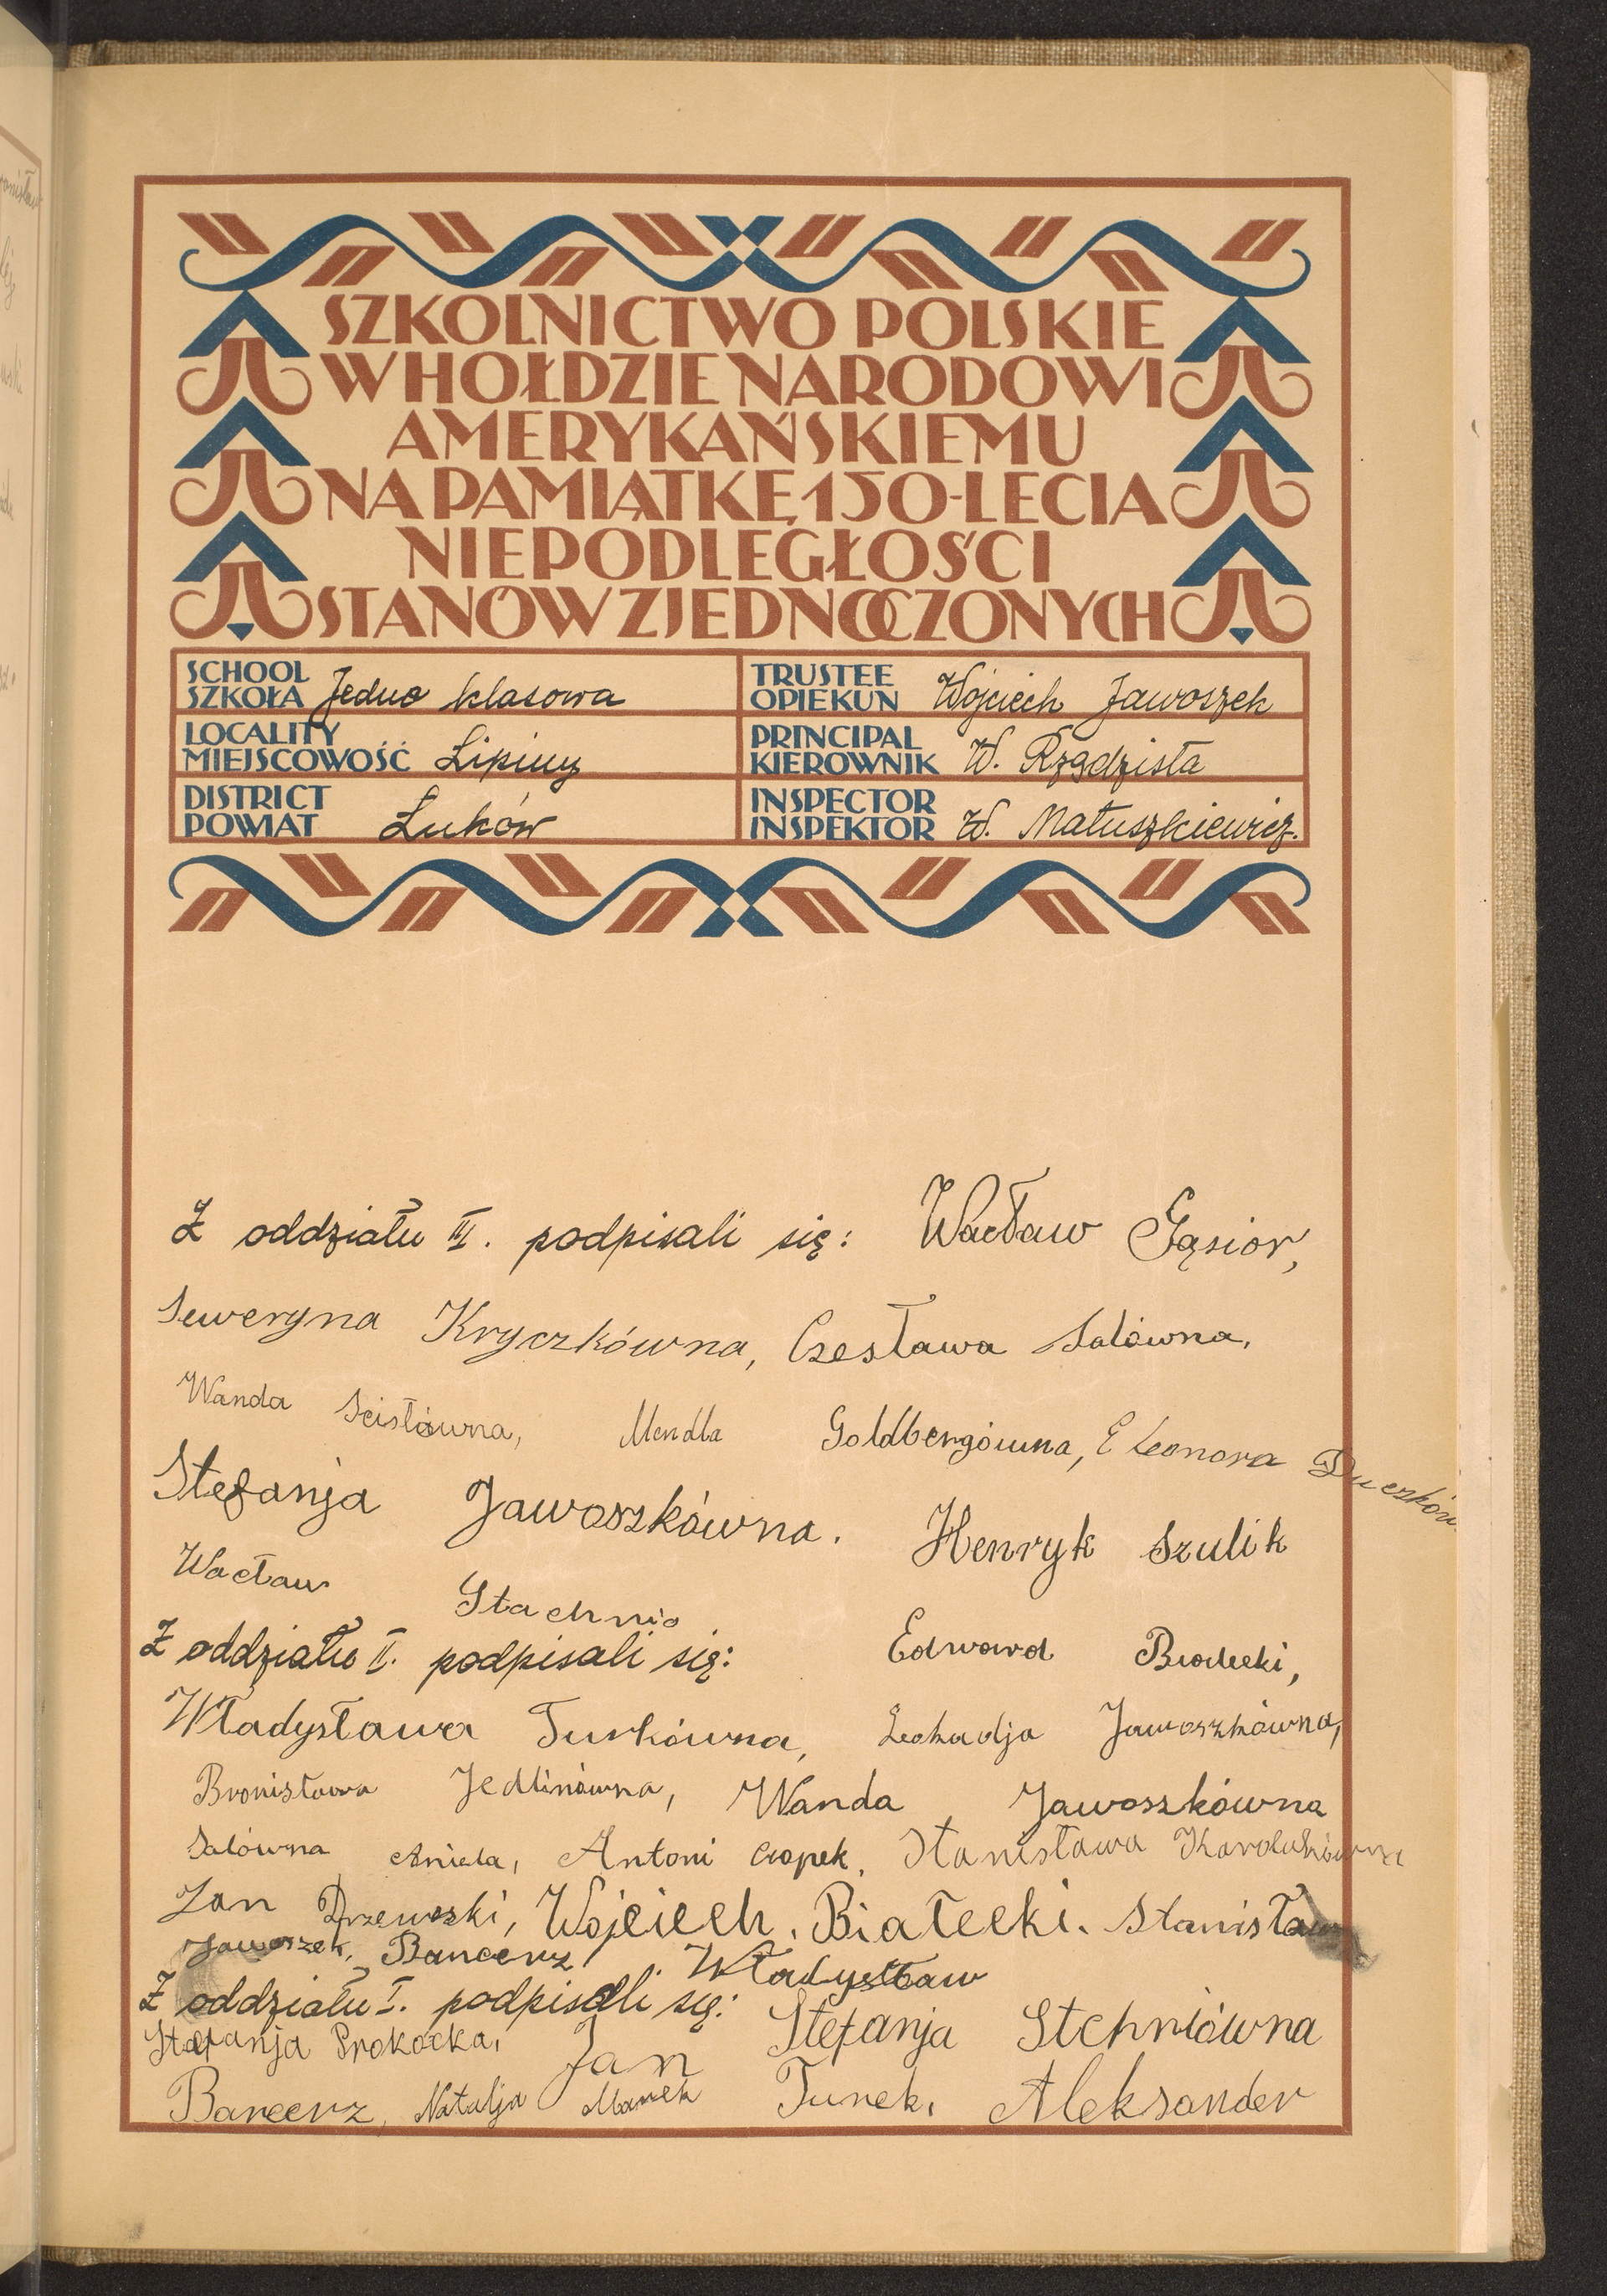 SZKOLNICTWO POLSKIE
W HOŁDZIE NARODOWI
AMERYKAŃSKIEMU
NA PAMIĄTKĘ 150-LECIA
NIEPODLEGŁOŚCI
STANÓW ZJEDNOCZONYCH
SCHOOL
SZKOŁA Jedno klasowa
TRUSTEE
OPIEKUN Wojciech Jawoszek
LOCALITY
MIEJSCOWOŚĆ Lipiny
PRINCIPAL
KIEROWNIK W. Rządzista
DISTRICT
POWIAT Łuków
INSPECTOR
INSPEKTOR W. Matuszkiewicz.
Z oddziału III. podpisali się: Wacław Gąsior,
Seweryna Kryczkówna, Czesława Salówna,
Wanda Scisłówna, Mendla Goldbergówna, Eleonora
Stefanja Jawoszkówna. Henryk Szulik
Wacław Stachnio
Z oddziału II. podpisali się: Edward
Władysława Turkówna, Leokadja Jawoszkówna,
Bronisława Jedlinówna, Wanda Jawoszkówna
Salówna Aniela, Antoni Czopek, Stanisława
Jan Drzewoski, Wojciech. Białecki. Stanisław
Jawoszek, Bancerz Władysław
Z oddziału I. podpisali się: Stefanja Stchniówna
Stefanja Prokocka, Jan
Bancerz, Natalja Marek Turek, Aleksander